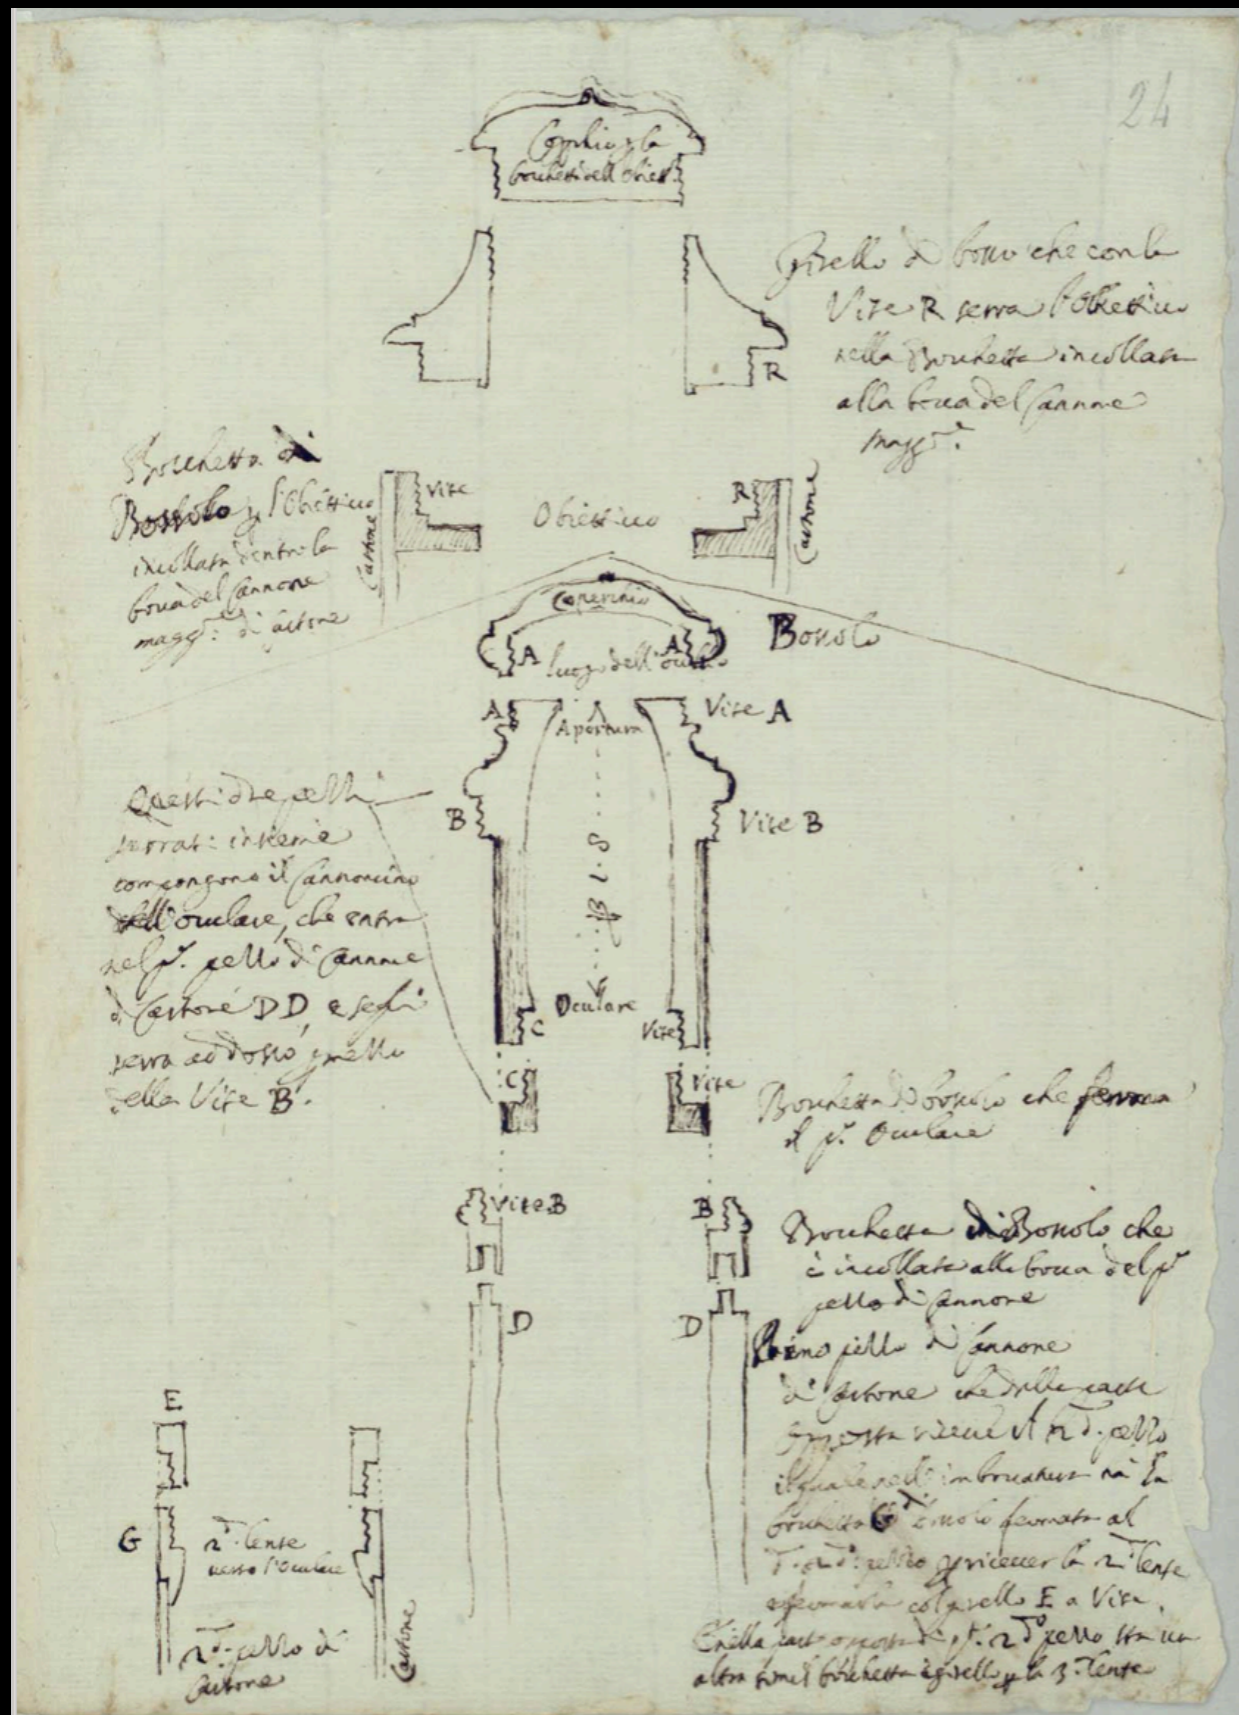 24
Coperchio p la
bocchetta dell'Obiett.
Girello di bosso che con la
Vite R serra l'Obiettivo
nella Bocchetta incollata
alla bocca del Cannone
magg.re
R
Bocchetta di
Bossolo p l'Obiettivo
incollata dentro la
bocca del Cannone
magg.re di cartone
Cartone
Vite
Obiettivo
R
Cartone
Coperchio
A
A
luogo dell'occhio
Bossolo
A
Apertura
Vite A
B
Vite B
Questi due pezzi
serrati insieme
compongono il Cannoncino
dell'oculare, che entra
nel p.o pezzo di Cannone
di Cartone DD, e se gli
serra addosso p mezzo
della Vite B.
Oculare
C
Vite
C
Vite
Bocchetta di bossolo che ferma
il p.o Oculare
Vite B
B
Bocchetta di Bossolo che
è incollata alla bocca del p.o
pezzo di Cannone
D
D
Primo pezzo di Cannone
di Cartone che dalla parte
opposta riceve il 2.do pezzo
il quale nell'imboccatura ha la
bocchetta G di bossolo fermata al
d.o 2.do pezzo p ricever la 2.da lente
e fermarla col girello E a Vite.
E nella parte opposta di q.o 2.do pezzo sta un
altra simil bocchetta e girello p la 3.a lente
E
G
2.da lente
verso l'Oculare
2.do pezzo di
Cartone
Cartone